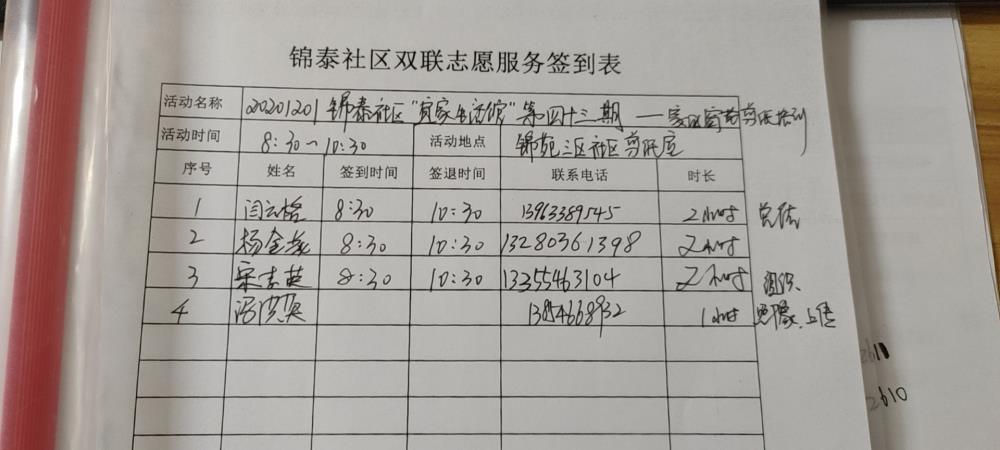 锦泰社区双联志愿服务签到表
活动名称 20201201 锦泰社区"宜家生活馆"第四十三期——
活动时间 8:30~10:30 活动地点 锦苑三区社区剪纸室
序号 姓名 签到时间 签退时间 联系电话 时长
1 闫云格 8:30 10:30 13963389545 2小时 总结
2 杨金 8:30 10:30 13280361398 2小时
3 宋吉英 8:30 10:30 13355463104 2小时 组织、
4 冯洪英 13854668932 1小时 照像、上传
2610
2610